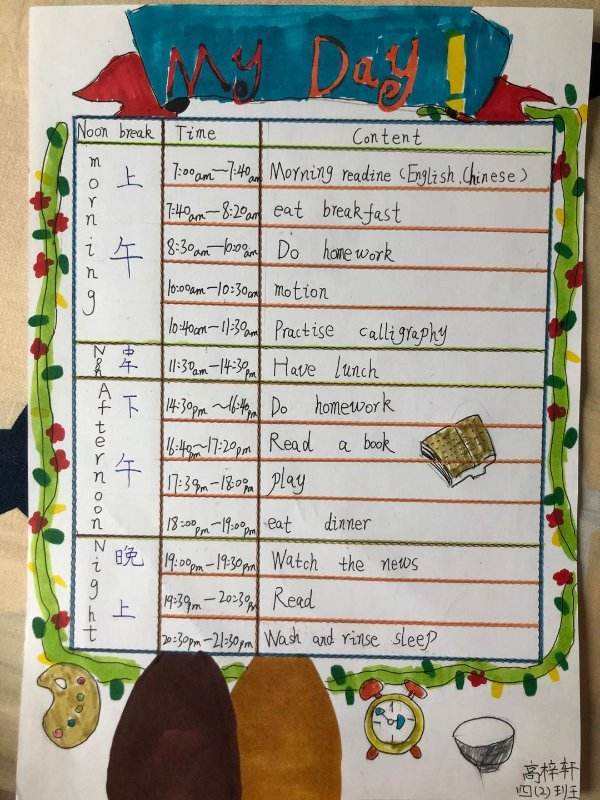 My Day!
Noon break Time Content
morning 上午
7:00am—7:40am Morning readine (English.Chinese)
7:40am—8:20am eat breakfast
8:30am—10:00am Do homework
10:00am—10:30am motion
10:40am—11:30am Practise calligraphy
11:30am—14:30pm Have lunch
Afternoon 下午
14:30pm ~16:40pm Do homework
16:40~17:20pm Read a book
17:30pm—18:00pm play
18:00pm—19:00pm eat dinner
Night 晚上
19:00pm—19:30pm Watch the news
19:30pm—20:30pm Read
20:30pm—21:30pm Wash and rinse sleep
高梓轩
四(2)班